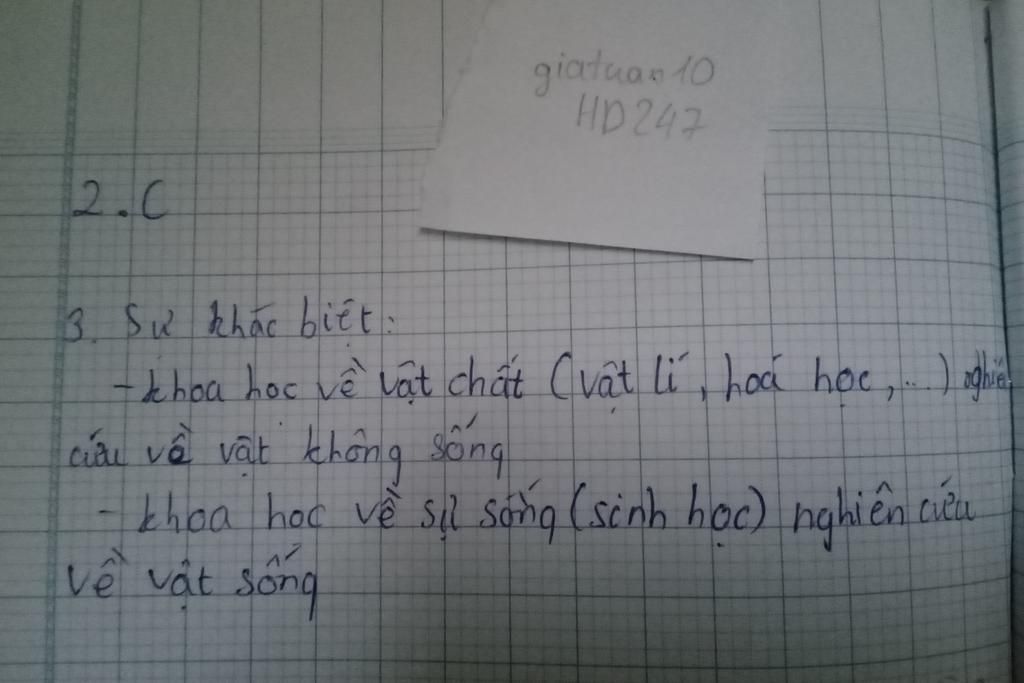 giatuan10
HD247
2. C
3. Sự khác biệt:
- khoa học về vật chất (vật lí, hoá học, ...) nghiê
cứu về vật không sống
- khoa học về sự sống (sinh học) nghiên cứu
về vật sống